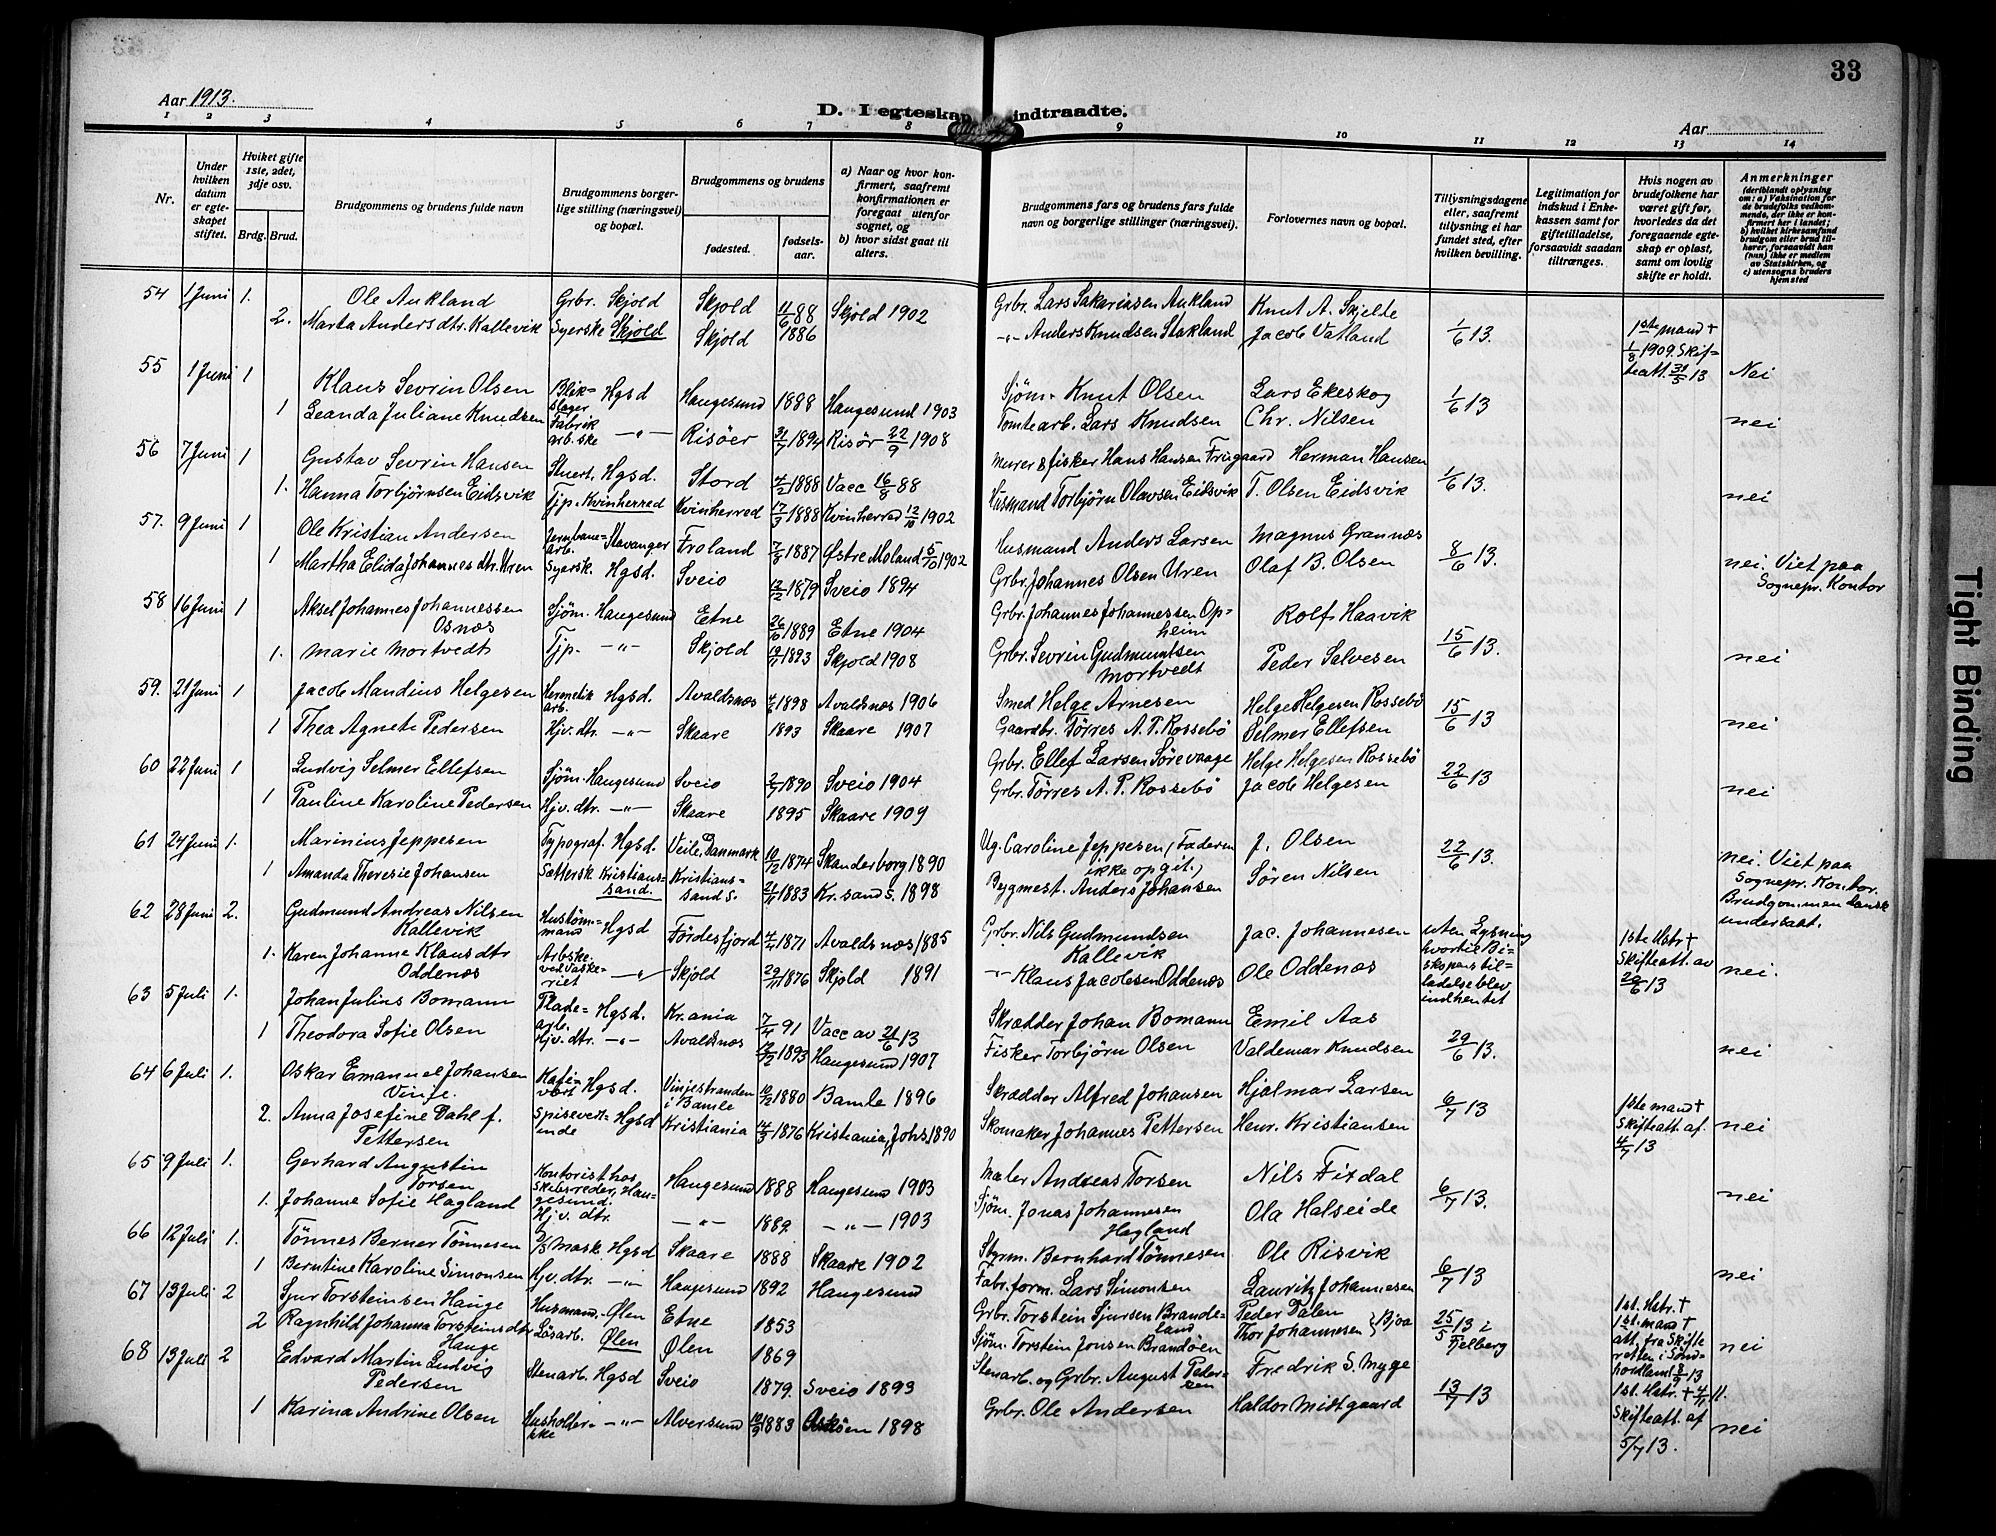 33
Aar 1913.
D. I egteskap indtraadte.
Aar
1 2 3 4 5 6 7 8 9 10 11 12 13 14
Nr.
Under hvilken datum er egteskapet stiftet.
Hvilket gifte 1ste, 2det, 3dje osv.
Brdg. Brud.
Brudgommens og brudens fulde navn
Brudgommens borgerlige stilling (næringsvei) og bopæl.
Brudgommens og brudens
fødested.
fødselsaar.
a) Naar og hvor konfirmert, saafremt konfirmationen er foregaat utenfor sognet, og
b) hvor sidst gaat til alters.
Brudgommens fars og brudens fars fulde navn og borgerlige stillinger (næringsvei).
Forlovernes navn og bopæl.
Tillysningsdagene eller, saafremt tillysning ei har fundet sted, efter hvilken bevilling.
Legitimation for indskud i Enkekassen samt for giftetilladelse, forsaavidt saadan tiltrænges.
Hvis nogen av brudefolkene har været gift før, hvorledes da det foregaaende egteskap er opløst, samt om lovlig skifte er holdt.
Anmerkninger
(deriblandt oplysning om: a) Vaksination for de brudefolks vedkommende, der ikke er konfirmert her i landet; b) hvilket kirkesamfund brudgom eller brud tilhører, forsaavidt han (hun) ikke er medlem av Statskirken, og c) utensogns bruders hjemsted
54 1 Juni 1. Ole Aukland Grbr. Skjold Skjold 11/6 88 Skjold 1902 Grbr. Lars Sakariasen Aukland Knut A. Skjelde
2. Marta Andersdtr. Kallevik Syerske Skjold Skjold 1886 -"- Anders Knudsen Stakland Jacob Vatland 1/6 13. 1ste mand † 1/8 1909. Skifteatt. 31/5 13 Nei
55 1 Juni 1 Klaus Sevrin Olsen Blikslager Hgsd Haugesund 1888 Haugesund 1903 Sjøm. Knut Olsen Lars Ekeskog 1/6 13
1 Leanda Juliane Knudsen Fabrik arb.ske -"- Risöer 31/7 1894 Risör 22/9 1908 Tomtearb. Lars Knudsen Chr. Nilsen nei
56 7 Juni 1 Gustav Sevrin Hansen Stuert. Hgsd. Stord 4/2 1888 Vacc 16/8 88 Murer & fisker Hans Hansen Frugaard Herman Hansen 1/6 13.
1. Hanna Torbjørnsen Eidsvik Tjp. Kvinherred Kvinherred 17/3 1888 Kvinherred 12/10 1902 Husmand Torbjørn Olavsen Eidsvik T. Olsen Eidsvik nei
57. 9 Juni 1 Ole Kristian Andersen Jernbanearb. Stavanger Froland 7/9 1887 Østre Moland 5/10 1902 Husmand Anders Larsen Magnus Grannæs 8/6 13.
1 Martha Elida Johannesdtr. Uren Syersk. Hgsd. Sveio 12/2 1879 Sveio 1894 Grbr. Johannes Olsen Uren Olaf B. Olsen nei. Viet paa Sognepr. Kontor
58 16 Juni 1 Aksel Johannes Johannessen Osnæs Sjøm. Haugesund Etne 26/10 1889 Etne 1904 Grbr. Johannes Johannessen Opheim Rolf Haavik 15/6 13.
1. Marie Mortvedt Tjp. -"- Skjold 19/11 1893 Skjold 1908 Grbr. Sevrin Gudmundsen Mortvedt Peder Salvesen nei
59. 21 Juni 1 Jacob Mandius Helgesen Hermetik arb. Hgsd. Avaldsnæs 4/6 1898 Avaldsnæs 1906 Smed Helge Arnesen Helge Helgesen Rossebö 15/6 13
1 Thea Agnete Pedersen Hjv. dtr. -"- Skaare 1893 Skaare 1907 Gaardbr. Tørres A. P. Rossebö Selmer Ellefsen nei
60 22 Juni 1 Ludvig Selmer Ellefsen Sjøm. Haugesund Sveio 2/7 1890 Sveio 1904 Grbr. Ellef Larsen Sörevaage Helge Helgesen Rossebö 22/6 13
1 Pauline Karoline Pedersen Hjv. dtr. -"- Skaare 1895 Skaare 1909 Grbr. Törres A. P. Rossebö Jacob Helgesen nei
61 24 Juni 1. Marinius Jeppesen Typograf. Hgsd. Veile, Danmark 10/12 1874 Skanderborg 1890 Ug. Caroline Jeppesen, (Faderen ikke opgit.) J. Olsen 22/6 13.
1 Amanda Theresie Johansen Sættersk Kristianssand. Kristianssand S. 21/11 1883 Kr.sand S. 1898 Bygmest. Anders Johansen Søren Nilsen nei. Viet paa Sognepr. Kontor. Brudgommen dansk undersaat.
62 28 Juni 2. Gudmund Andreas Nilsen Kallevik Hustømmand Hgsd Førdesfjord 4/4 1871 Avaldsnæs 1885 Grbr. Nils Gudmundsen Kallevik Jac. Johannesen uten Lysning hvortil Biskopens tilladelse blev indhentet 1ste Hstr † Skifteatt. av 20/6 13
1. Karen Johanne Klausdtr Oddenæs Arbske. ved Vaskeriet -"- Skjold 29/11 1876 Skjold 1891 -"- Klaus Jacobsen Oddenæs Ole Oddenæs nei.
63 5 Juli 1. Johan Julius Bomann Pladearb. Hgsd. Kr.ania 7/4 91 Vacc av 21/6 13 Skrædder Johan Bomann Emil Aas 29/6 13.
1 Theodora Sofie Olsen Hjv. dtr. -"- Avaldsnæs 12/2 1893 Haugesund 1907 Fisker Torbjørn Olsen Valdemar Knudsen nei
64 6 Juli 1. Oskar Emanuel Johansen Vinje. Kafevert Hgsd. Vinjestranden i Bamle 10/12 1880 Bamle 1896 Skrædder Alfred Johansen Hjalmar Larsen 6/7 13
2. Anna Josefine Dahl f. Pettersen Spisevertinde Hgsd Kristiania 14/3 1876 Kristiania, Johs 1890 Skomaker Johannes Pettersen Henr. Kristiansen 1ste mand † Skifteatt. af 4/7 13 nei
65 9 Juli 1. Gerhard Augustin Torsen Kontorist hos Skibsreder, Haugesund. Haugesund 1888 Haugesund 1903 Maler Andreas Torsen Nils Fixdal 6/7 13.
1. Johanne Sofie Hagland Hjv. dtr. -"- 1889 -"- 1903 Sjøm. Jonas Johannesen Hagland Ola Halseide nei
66 12 Juli 1. Tönnes Berner Tönnesen D/S Mask. Hgsd Skaare 1888 Skaare 1902 Styrm. Bernhard Tönnesen Ole Risvik 6/7 13
1 Berntine Karoline Simonsen Hjv. dtr. -"- Haugesund 1892 Haugesund Fabr. form. Lars Simonsen Lauritz Johannesen nei
67 13 Juli 2 Sjur Torsteinsen Hauge Husmand. Ølen Etne 1853 Grbr. Torstein Sjursen Brandeland Peder Dalen 25/5 13 i Fjelberg 1st. Hstr. † 1st. mand † att. fra Skifteretten i Søndhordland 8/9 13
2 Ragnhild Johanna Torsteinsdtr Hauge Løsarb. Ølen Ølen 1869 Sjøm. Torstein Jonsen Brandøen Thor Johannesen } Bjoa nei
68 13 Juli 2 Edvard Martin Ludvig Pedersen Stenarb. Hgsd Sveio 1879. Sveio 1893 Stenarb. og Grbr. August Pedersen Fredrik S. Myge 13/7 13 1st. Hstr. † 4/11 11. Skifteatt. af 5/7 13.
1 Karina Andrine Olsen Husholderske -"- Alversund 10/9 1883 Askøen 1898 Grbr. Ole Andersen Haldor Midtgaard nei
Tight Binding